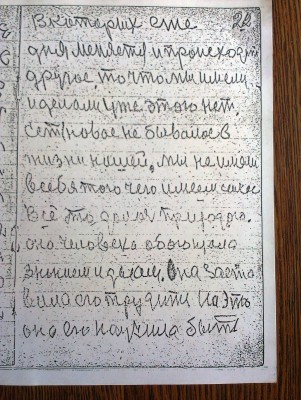 В которых сие 22
дня меняется и происходит
другое, то что мы имели
и делали уже этого нет.
Есть новое не бывалое в
жизни нашей, мы не имели
в себя того чего имеем сейчас
Всё это дело природы.
она человека
знанием и делам, она заста
вила его трудится на это
она его научила быть